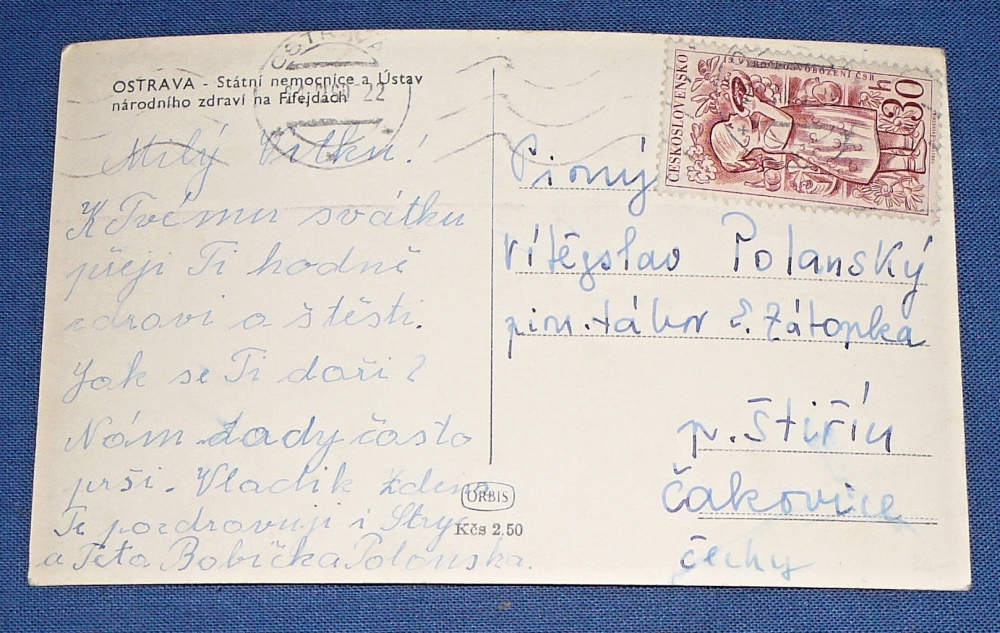 OSTRAVA - Státní nemocnice a Ústav
národního zdraví na Fifejdách
OSTRAVA
22
ČESKOSLOVENSKO
15. VÝROČÍ OSVOBOZENÍ ČSR
30 h
Milý Vítku!
K Tvému svátku
přeji Ti hodně
zdraví a štěstí.
Jak se Ti daří?
Nám tady často
prší. Vladík Zdena
Te pozdravují i Strýc
a Teta Bobička Polanska.
ORBIS
Kčs 2,50
Pioný
Vítězslav Polanský
pion. tábor E. Zátopka
p. Štiřín
Čakovice
Čechy